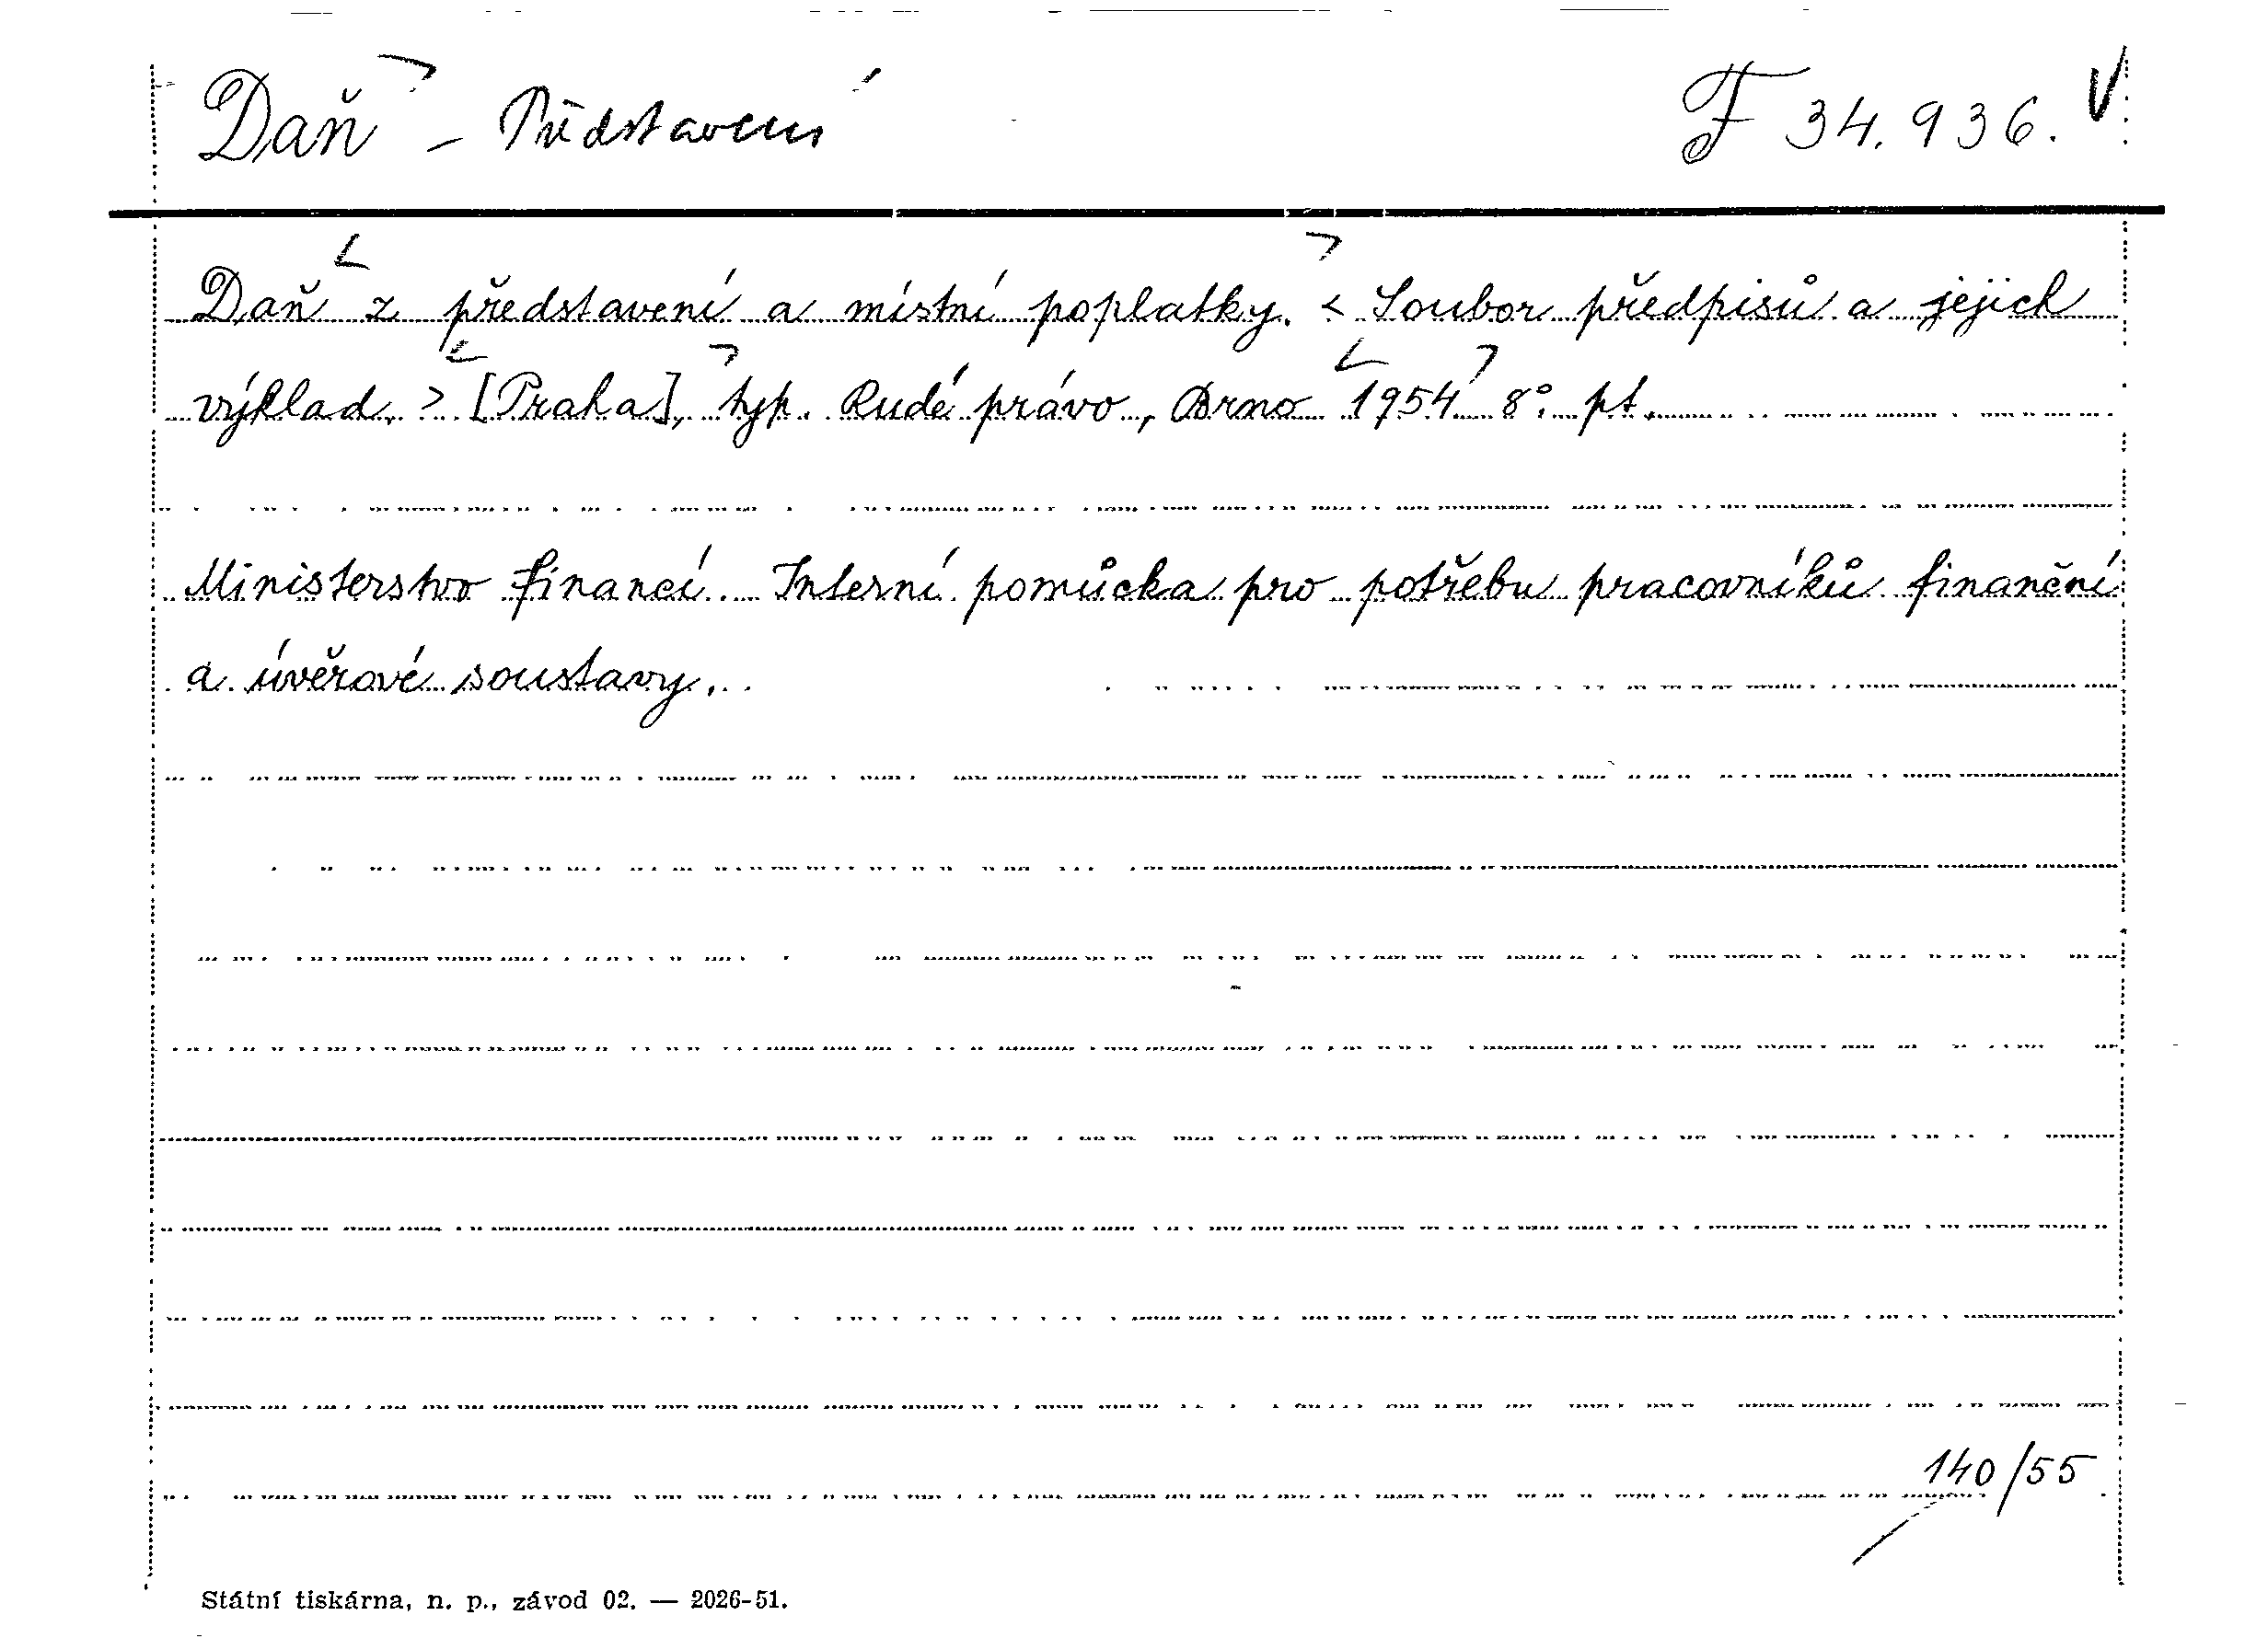 Daň - Představení F 34.936.
Daň z představení a místní poplatky. < Soubor předpisů a jejich
výklad. > [Praha], typ. Rudé právo, Brno 1954 8° pt.
Ministerstvo financí. Interní pomůcka pro potřebu pracovníků finanční
a úvěrové soustavy.
140/55
Státní tiskárna, n. p., závod 02. — 2026-51.